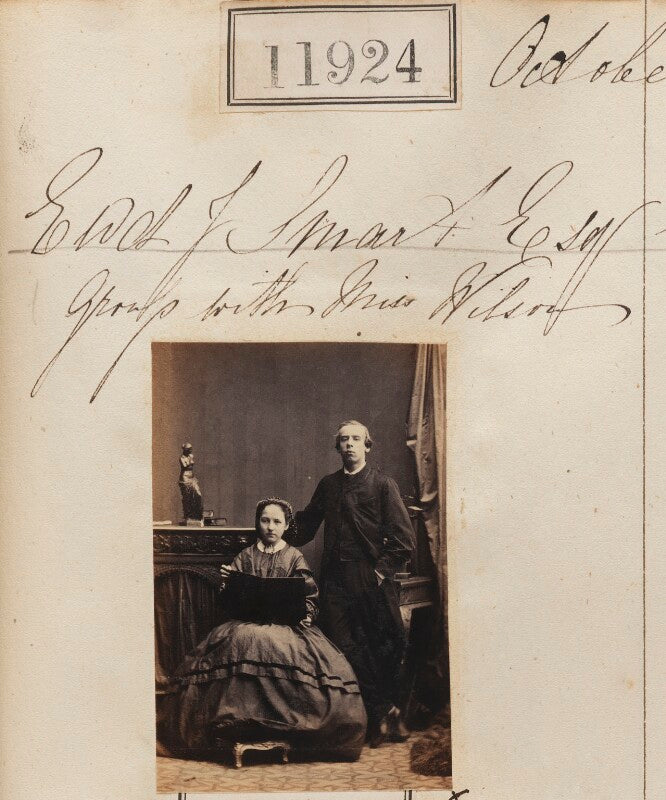 11924
Octobe
Edwd J Smart Esqr
Group with Miss Wilson